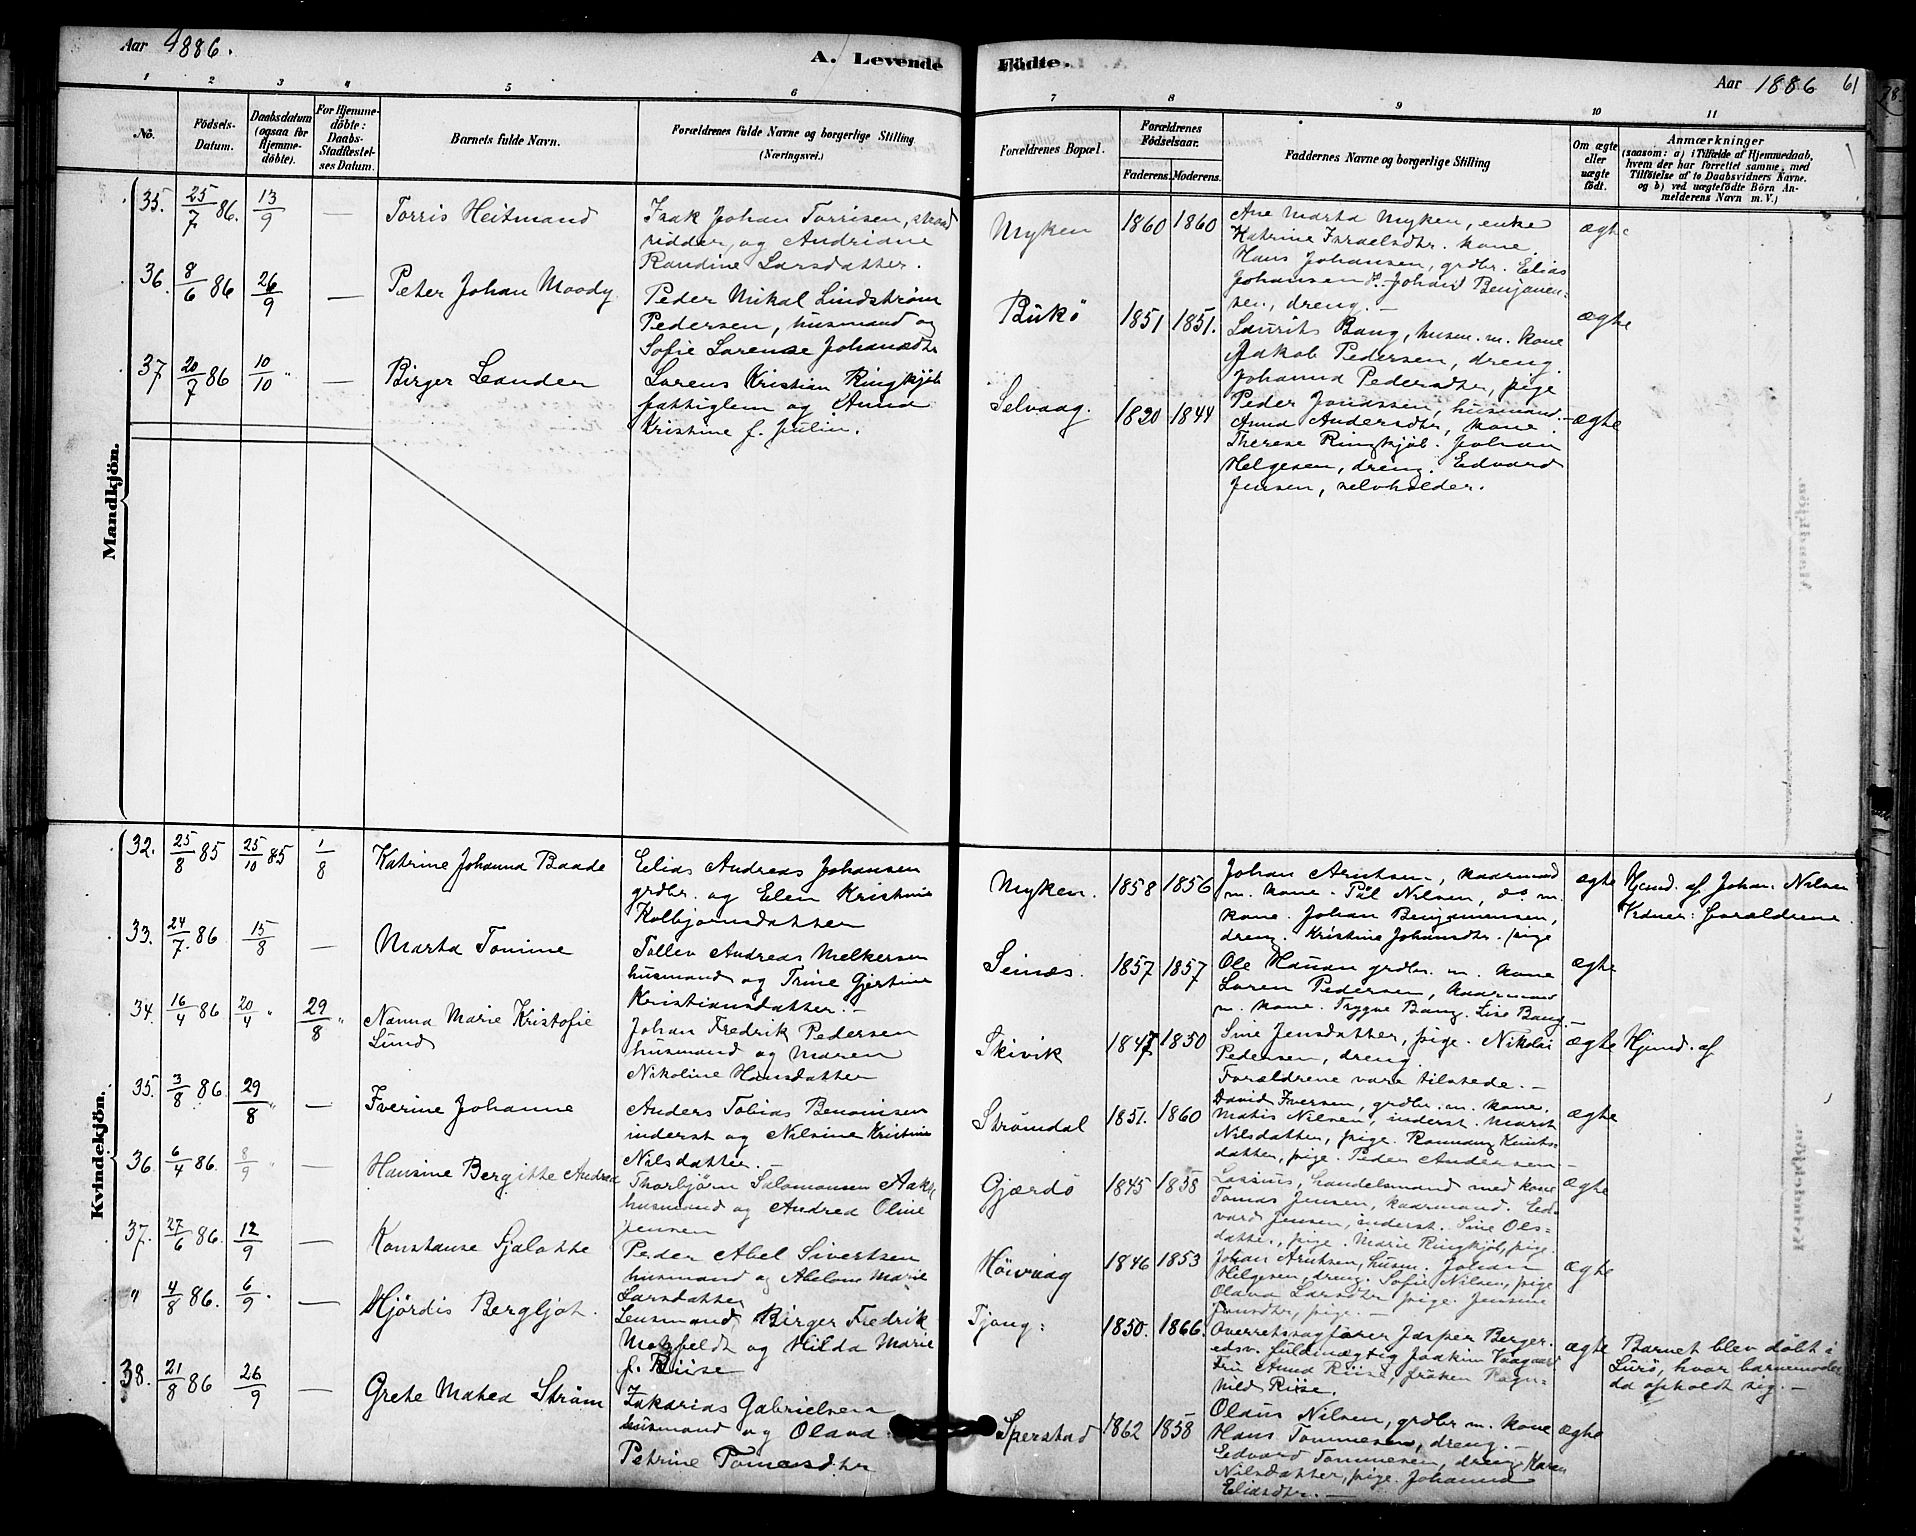 Aar 1886.
A. Levende Födte.
Aar 1886 61
1 2 3 4 5 6 7 8 9 10 11
No.
Födsels-Datum.
Daabsdatum (ogsaa for Hjemme-döbte).
For Hjemme-döbte: Daabs-Stadfæstel-ses Datum.
Barnets fulde Navn.
Forældrenes fulde Navne og borgerlige Stilling
(Næringsvei.)
Forældrenes Bopæl.
Forældrenes Födselsaar.
Faderens. Moderens.
Faddernes Navne og borgerlige Stilling
Om ægte eller uægte födt.
Anmærkninger
(saasom: a) i Tilfælde af Hjemmedaab,
hvem der har forrettet samme, med
Tilföielse af to Daabsvidners Navne.
og b) ved uægtefödte Börn An-
melderens Navn m. V.)
Mandkjön.
35. 25/7 86. 13/9 — Torris Heitmand
Isak Johan Torrisen, strand
ridder, og Andriane
Randine Larsdatter.
Myken 1860 1860
Ane Marta Myken, enke
Katrine Israelsdtr. kone,
Hans Johansen, grdbr. Elias
Johansen do. Johan Benjamin-
sen, dreng.—
ægte
36. 8/6 86 26/9 — Peter Johan Moody
Peder Mikal Lindstrøm
Pedersen, husmand og
Sofie Lorense Johansdtr
Bukø 1851 1851.
Laurits Bang, husm. m. kone
Jakob Pedersen, dreng.
Johanna Pedersdtr, pige
ægte
37 20/7 86 10/10 " — Birger Leander
Lorens Kristian Ringkjøb
fattiglem og Anna
Kristine f. Julin.
Selvaag. 1820 1844
Peder Jonassen, husmand.—
Anna Andersdtr, kone.
Therese Ringkjøb. Johan
Helgesen, dreng. Edvard
Jensen, selvholder.
ægte
Kvindekjön.
32. 25/8 85 25/10 85 1/8 Katrine Johanna Baade
Elias Andreas Johansen
grdbr. og Elen Kristine
Kolbjørnsdatter
Myken. 1858 1856
Johan Arntsen, kaarmand
m. kone. Pål Nilsen, do. m.
kone. Johan Benjaminsen,
dreng. Kristine Johansdtr. pige
ægte
Hjmd. af Johan Nilsen
Vidner: Forældrene.
33. 24/7 86 15/8 — Marta Tomine
Tollev Andreas Melkersen
husmand og Trine Gjertine
Kristiansdatter.—
Seines. 1857 1857
Ole Hauan grdbr. m. kone
Loren Pedersen, kaarmand
m. kone. Trygve Bang. Lise Bang.—
ægte
34. 16/4 86 20/4 " 29/8 " Nanna Marie Kristofie
Lund
Johan Fredrik Pedersen
husmand og Maren
Nikoline Hansdatter
Skivik 1847 1850
Sine Jensdatter, pige. Nikolai
Pedersen, dreng.
Forældrene vare tilstede.—
ægte Hjmd. af
35. 3/8 86 29/8 " — Iverine Johanne
Anders Tobias Benonisen
inderst og Nilsine Kristine
Nilsdatter.—
Strømdal 1851. 1860
David Iversen, grdbr. m. kone.
Matis Nilsen, inderst. Marit
Nilsdatter, pige. Rannang Knuts-
datter, pige. Peder Andersen.—
ægte
36. 6/4 86. 8/9 " — Hansine Bergitte Andrea
Thorbjørn Salomonsen Aakre
husmand og Andrea Oline
Jensen
Gjærdø 1845 1858
Lassius, handelsmand med kone
Tomas Jensen, kaarmand. Ed-
vard Jensen, inderst. Sine Ols-
datter, pige. Marie Ringkjøb, pige.
ægte
37. 27/6 86. 12/9 — Konstanse Fjalotte
Peder Abel Sivertsen
husmand og Abelone Marie
Larsdatter
Höivaag 1846 1853
Johan Arntsen, husm. Johan
Helgesen, dreng. Sofie Nilsen, pige
Olava Larsdtr pige. Jensine
Jonsdtr, pige.—
ægte
" 4/8 86. 6/9 . — Hjördis Bergljot.
Lensmand Birger Fredrik
Motzfeldt og Hilda Marie
f. Riise
Tjong: 1850. 1866.
Overretssagfører Jasper Berger.
edsv. fuldmægtig Joakim Vaagaard
Fru Anna Riise, frøken Ragn-
hild Riise.
ægte
Barnet blev døbt i
Lurø, hvor barnemoder
da opholdt sig.—
38. 21/8 86 26/9 — Grete Matea Strøm
Zakarias Gabrielsen
husmand og Olava
Petrine Tomasdtr
Sperstad 1862 1858
Olaus Nilsen, grdbr m. kone
Hans Tommesen, dreng.—
Edvard Tommesen, dreng. Karen
Nilsdatter, pige. Johanna
Eliasdtr.—
ægte